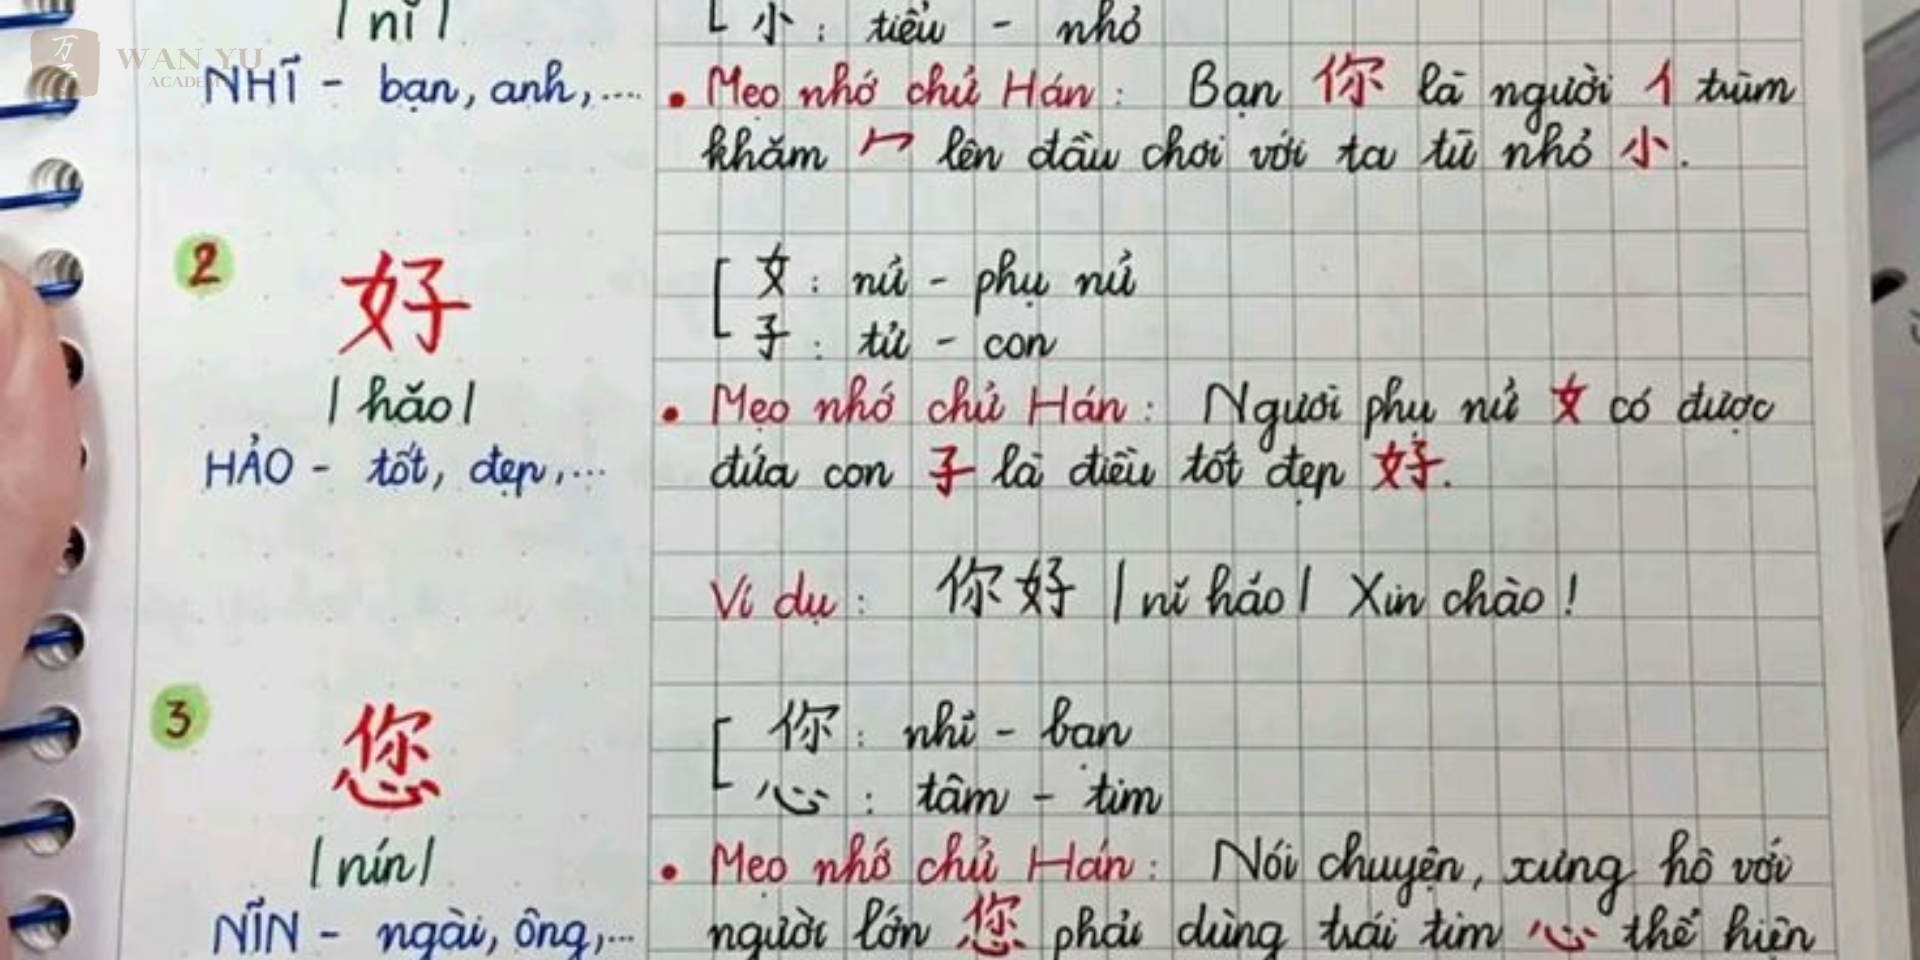 WAN YU
ACADE
| nǐ |
NHĨ - bạn, anh,....
小 : tiểu - nhỏ
• Mẹo nhớ chữ Hán : Bạn 你 là người 亻 trùm
khăm 冖 lên đầu chơi với ta từ nhỏ 小.
2
好
| hǎo |
HẢO - tốt, đẹp,...
女 : nữ - phụ nữ
子 : tử - con
• Mẹo nhớ chữ Hán : Người phụ nữ 女 có được
đứa con 子 là điều tốt đẹp 好.
Ví dụ : 你好 | nǐ hǎo | Xin chào !
3
您
| nín |
NĨN - ngài, ông,...
你 : nhĩ - bạn
心 : tâm - tim
• Mẹo nhớ chữ Hán : Nói chuyện, xưng hô với
người lớn 您 phải dùng trái tim 心 thể hiện